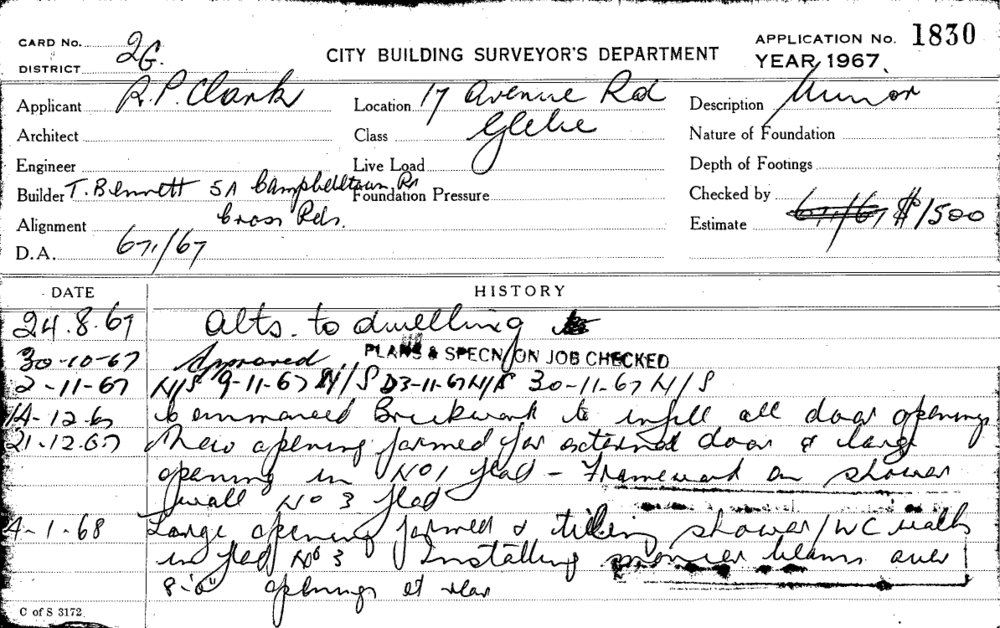 CARD No. 2G.
DISTRICT
CITY BUILDING SURVEYOR'S DEPARTMENT
APPLICATION No. 1830
YEAR 1967.
Applicant R.P. Clark
Location 17 Avenue Rd
Description Minor
Architect
Class Glebe
Nature of Foundation
Engineer
Live Load
Depth of Footings
Builder T. Bennett 5A Campbelltown Rd
Foundation Pressure
Checked by
Cross Rds.
Alignment
Estimate 671/67 $1500
D.A. 671/67
DATE HISTORY
24.8.67 Alts. to dwelling
30-10-67 Approved PLANS & SPECN ON JOB CHECKED
2-11-67 N/S 9-11-67 N/S 23-11-67 N/S 30-11-67 N/S
14-12-67 Commenced Brickwork to infill all door openings
21-12-67 New opening formed for external door & large
opening in No 1 flat - Framework on shower
wall No 3 flat
4-1-68 Large opening formed & tiling shower/WC walls
in flat No 3 Installing beams over
8'0" openings at rear
C of S 3172